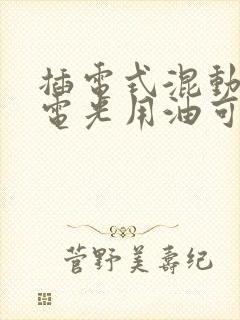 插電式混動
電光用油可
菅野美壽纪